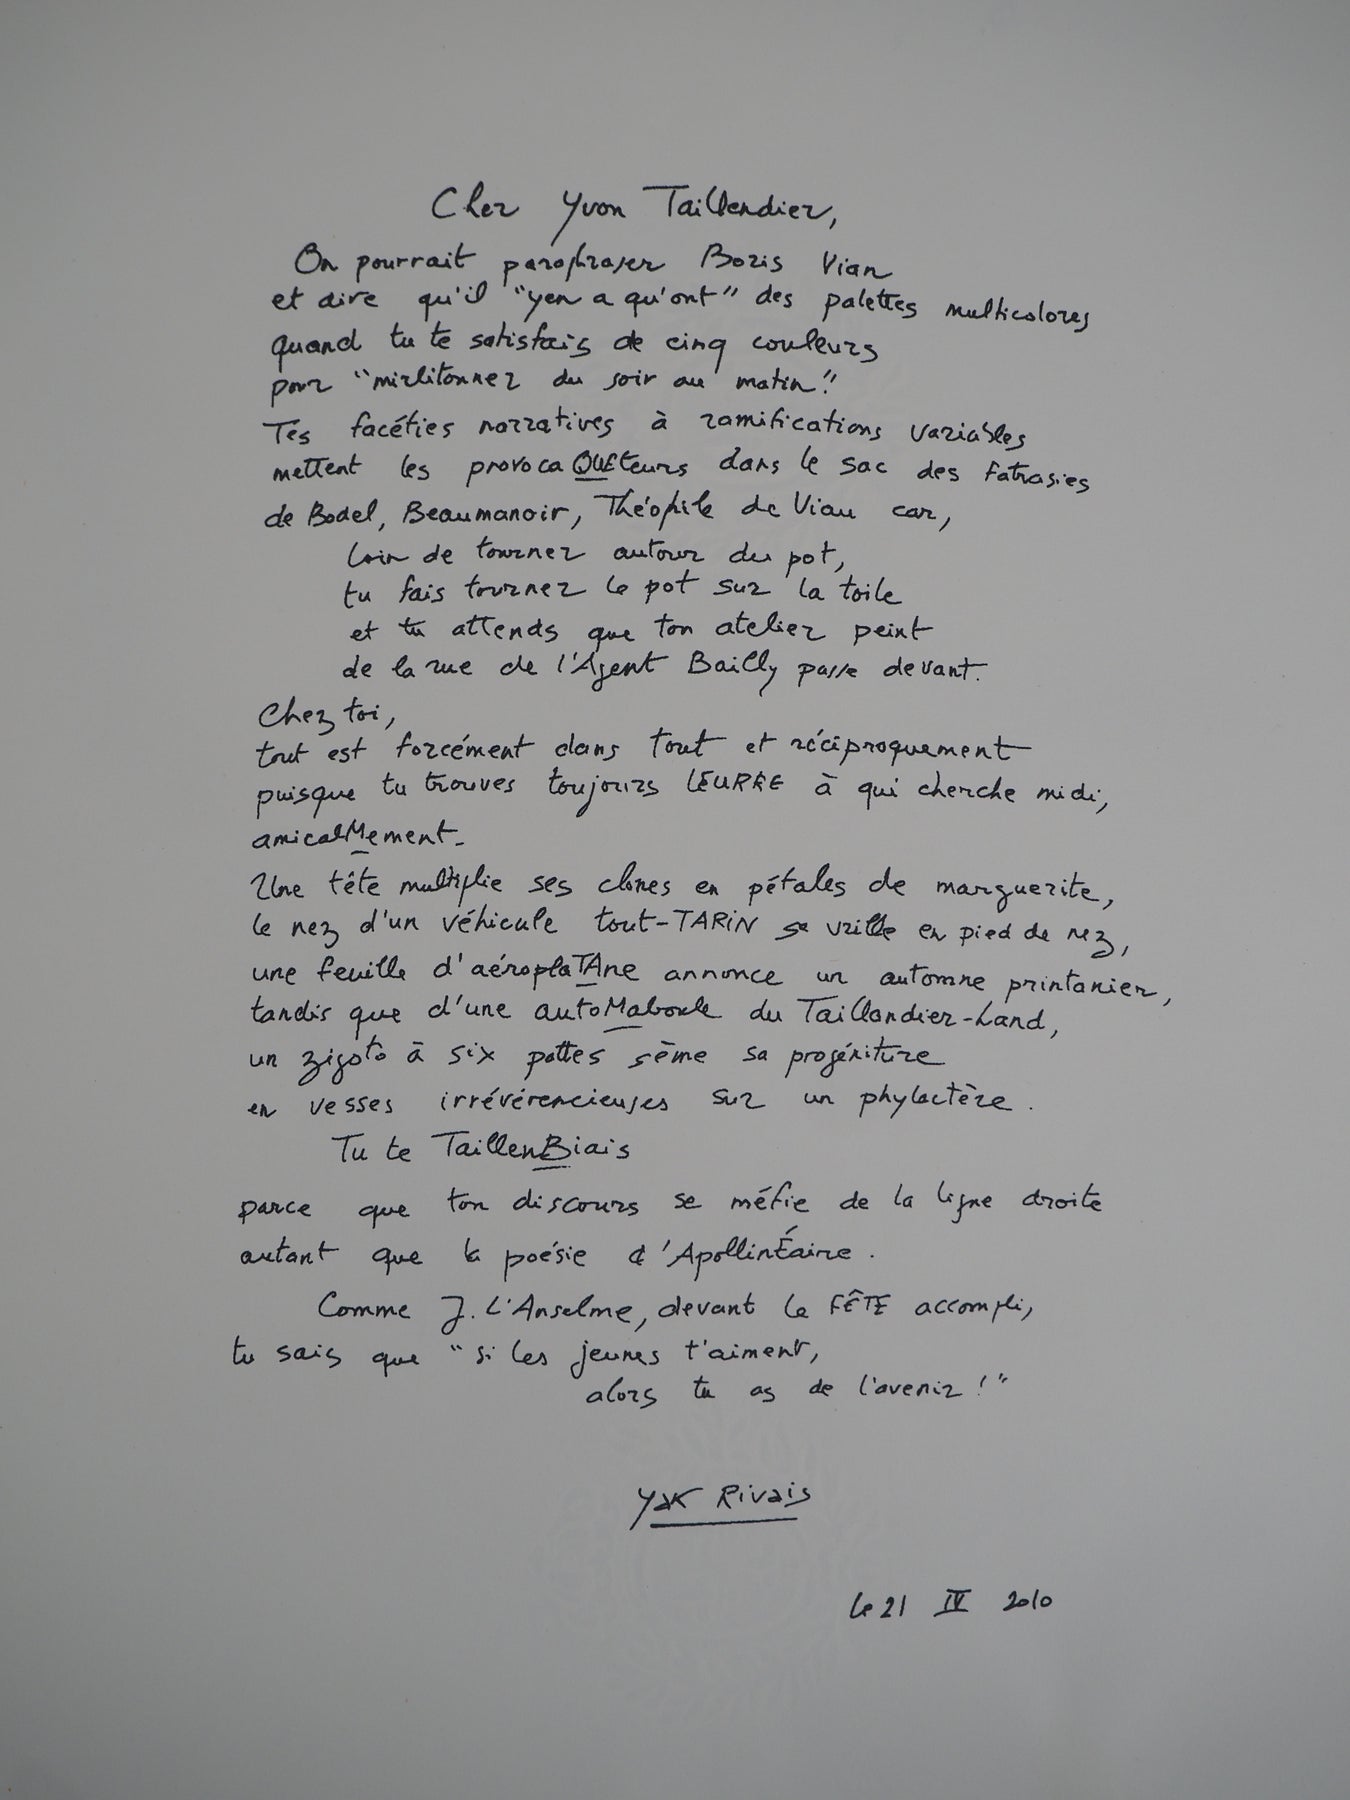 Cher Yvon Taillandier,
On pourrait paraphraser Boris Vian
et dire qu'il "yen a qu'ont" des palettes multicolores
quand tu te satisfais de cinq couleurs
pour "mirlitonner du soir au matin".
Tes facéties narratives à ramifications variables
mettent les provocaQUEteurs dans le sac des fatrasies
de Bodel, Beaumanoir, Théophile de Viau car,
loin de tourner autour du pot,
tu fais tourner le pot sur la toile
et tu attends que ton atelier peint
de la rue de l'Agent Bailly passe devant.
Chez toi,
tout est forcément dans tout et réciproquement
puisque tu trouves toujours LEURRE à qui cherche midi,
amicalMement.
Une tête multiplie ses clones en pétales de marguerite,
le nez d'un véhicule tout-TARiN se vrille en pied de nez,
une feuille d'aéroplaTAne annonce un automne printanier,
tandis que d'une autoMaboule du Taillandier-Land,
un zigoto à six pattes sème sa progéniture
en vesses irrévérencieuses sur un phylactère.
Tu te TaillenBiais
parce que ton discours se méfie de la ligne droite
autant que la poésie d'ApollinÉaire.
Comme J. L'Anselme, devant le FÊTE accompli,
tu sais que "si les jeunes t'aiment,
alors tu as de l'avenir!"
Yak Rivais
le 21 IV 2010